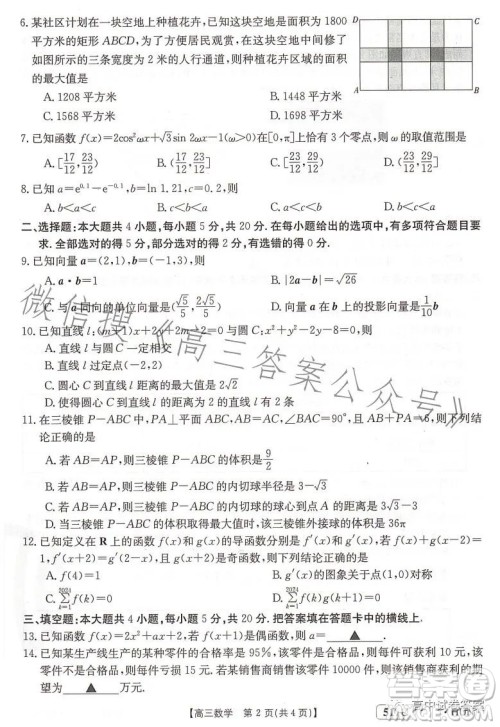 6.某社区计划在一块空地上种植花卉,已知这块空地是面积为1800
平方米的矩形ABCD,为了方便居民观赏,在这块空地中间修了
如图所示的三条宽度为2米的人行通道,则种植花卉区域的面积
的最大值是
A.1208平方米 B.1448平方米
C.1568平方米 D.1698平方米
D C
A B
7.已知函数f(x)=2cos²ωx+√3sin 2ωx(ω>0)在[0,π]上恰有3个零点,则ω的取值范围是
A.[17/12,23/12) B.(17/12,23/12] C.[23/12,29/12) D.(23/12,29/12]
8.已知a=e^0.1-e^-0.1,b=ln 1.21,c=0.2,则
A.b<a<c B.a<b<c C.b<c<a D.c<b<a
二、选择题:本大题共4小题,每小题5分,共20分.在每小题给出的选项中,有多项符合题目要
求.全部选对的得5分,部分选对的得2分,有选错的得0分.
9.已知向量a=(2,1),b=(-3,1),则
A.a·b=1 B.|2a-b|=√26
C.与a同向的单位向量是(√5/5,2√5/5) D.向量a在b上的投影向量是1/10 b
10.已知直线l:(m+1)x+2y+2m+2=0与圆C:x²+y²-2y-8=0,则
A.直线l与圆C一定相交
B.直线l过定点(-2,2)
C.圆心C到直线l距离的最大值是2√2
D.使得圆心C到直线l的距离为2的直线l有2条
11.在三棱锥P-ABC中,PA⊥平面ABC,∠BAC=90°,且AB+AC+PA=6,则下列结
论正确的是
A.若AB=AP,则三棱锥P-ABC的体积是9/2
B.若AB=AC=AP,则三棱锥P-ABC的内切球半径是3-√3
C.若AB=AC=AP,则三棱锥P-ABC的内切球的球心到点P的距离是3√3-3
D.当三棱锥P-ABC的体积取得最大值时,该三棱锥外接球的体积是36π
12.已知定义在R上的函数f(x)和g(x)的导函数分别是f'(x)和g'(x),若f(x)+g(x-2)=
1,f'(x+2)=g'(2-x),且g(x)的图象关于点(0,0)对称,则
A.f(4)=1 B.g'(x+2)=-g'(x)
C.∑f(k)=0 D.∑g(k)=0
三、填空题:本大题共4小题,每小题5分,共20分.把答案填在答题卡中的横线上.
13.已知函数f(x)=2x²+ax+2,若f(x+1)是偶函数,则a= ▲ .
14.已知某生产线生产的某种零件的合格率是95%,该零件是合格品,则每件可获利10元,该
零件不是合格品,则每件亏损15元.若某销售商销售该零件10000件,则该销售商获利的期
望为 ▲ 万元.
【高三数学 第2页(共4页)】
微信搜《高三答案公众号》